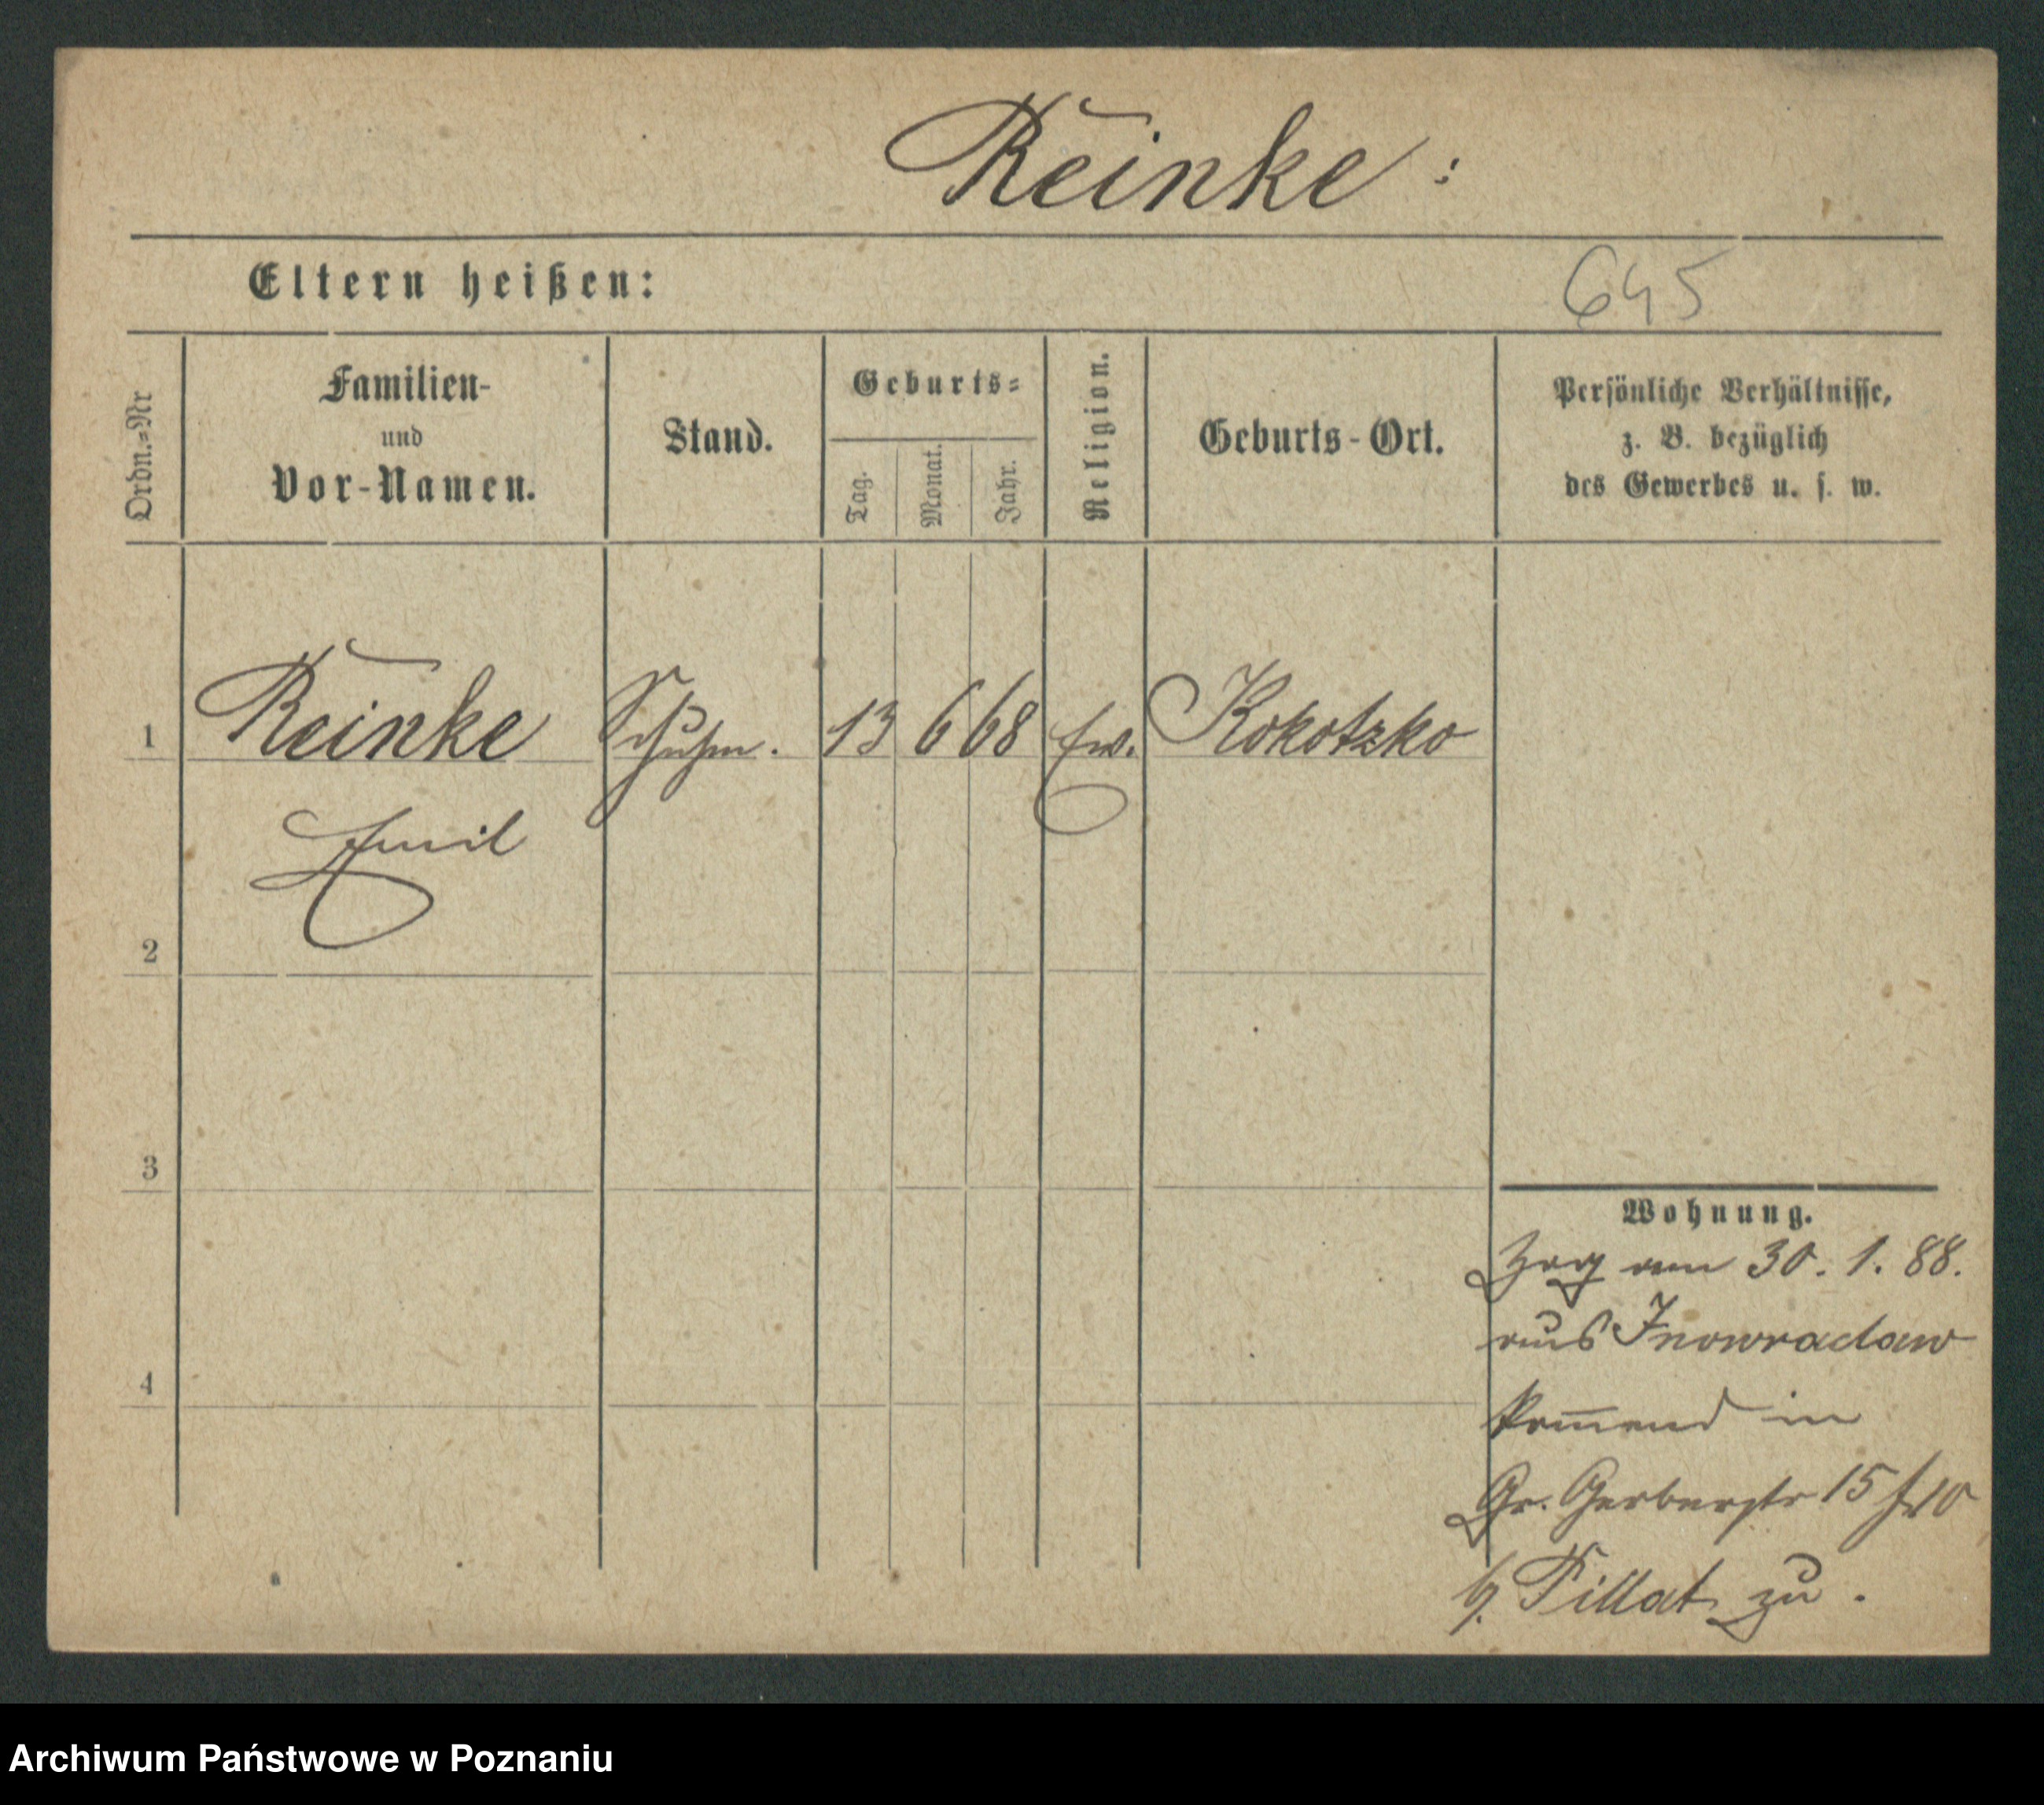 Reinke:
Eltern heißen:
645
Ordn.=Nr
Familien-
und
Vor-Namen.
Stand.
Geburts=
Tag.
Monat.
Jahr.
Religion.
Geburts-Ort.
Persönliche Verhältnisse,
z. B. bezüglich
des Gewerbes u. s. w.
1 Reinke Schuhm. 13 6 68 Ev. Kokotzko
Emil
2
3
4
Wohnung.
Zog am 30. 1. 88.
aus Inowraclaw
kom̅end in
Gr. Gerberstr 15
b. Pillat zu.
Archiwum Państwowe w Poznaniu